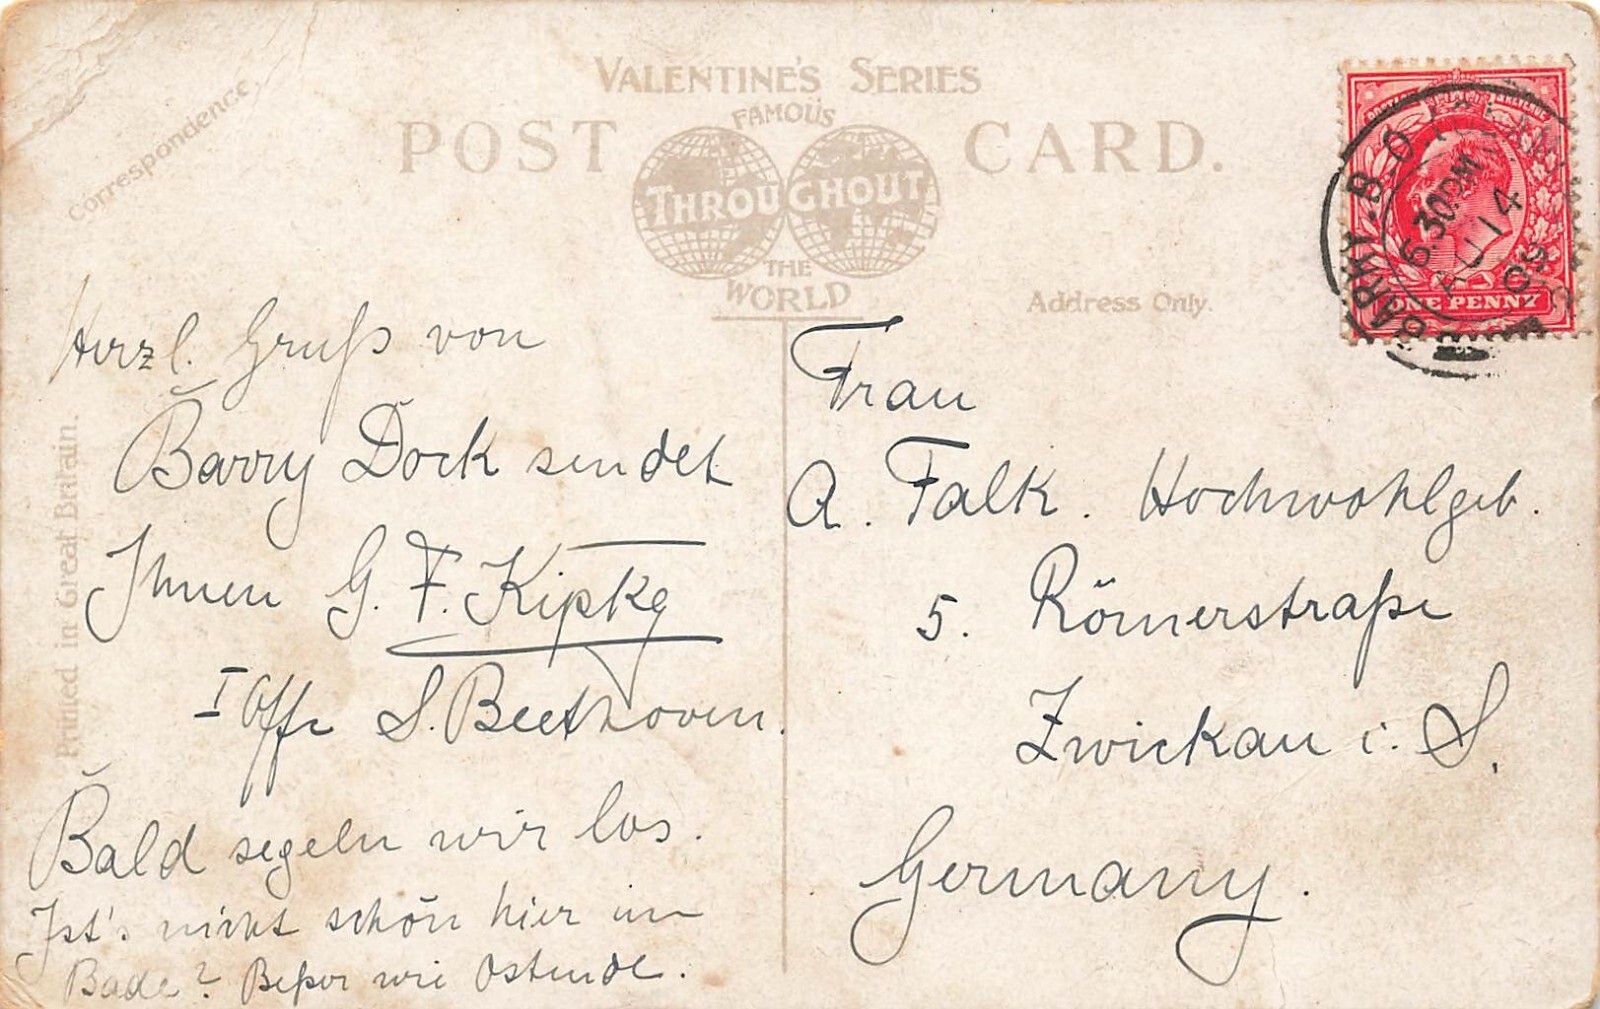 VALENTINE'S SERIES
FAMOUS
POST CARD.
THROUGHOUT
THE
WORLD
Correspondence.
Address Only.
Printed in Great Britain.
BARRY. B.O
6.30PM
AU 14
09
ONE PENNY
Herzl. Gruß von
Barry Dock sendet
Ihnen G. F. Kipkg
I Offr S. Beethoven.
Bald segeln wir los.
Ist's nicht schön hier im
Bade? Beßer wie Ostende.
Frau
A. Falk. Hochwohlgeb.
5. Römerstraße
Zwickau i. S.
Germany.